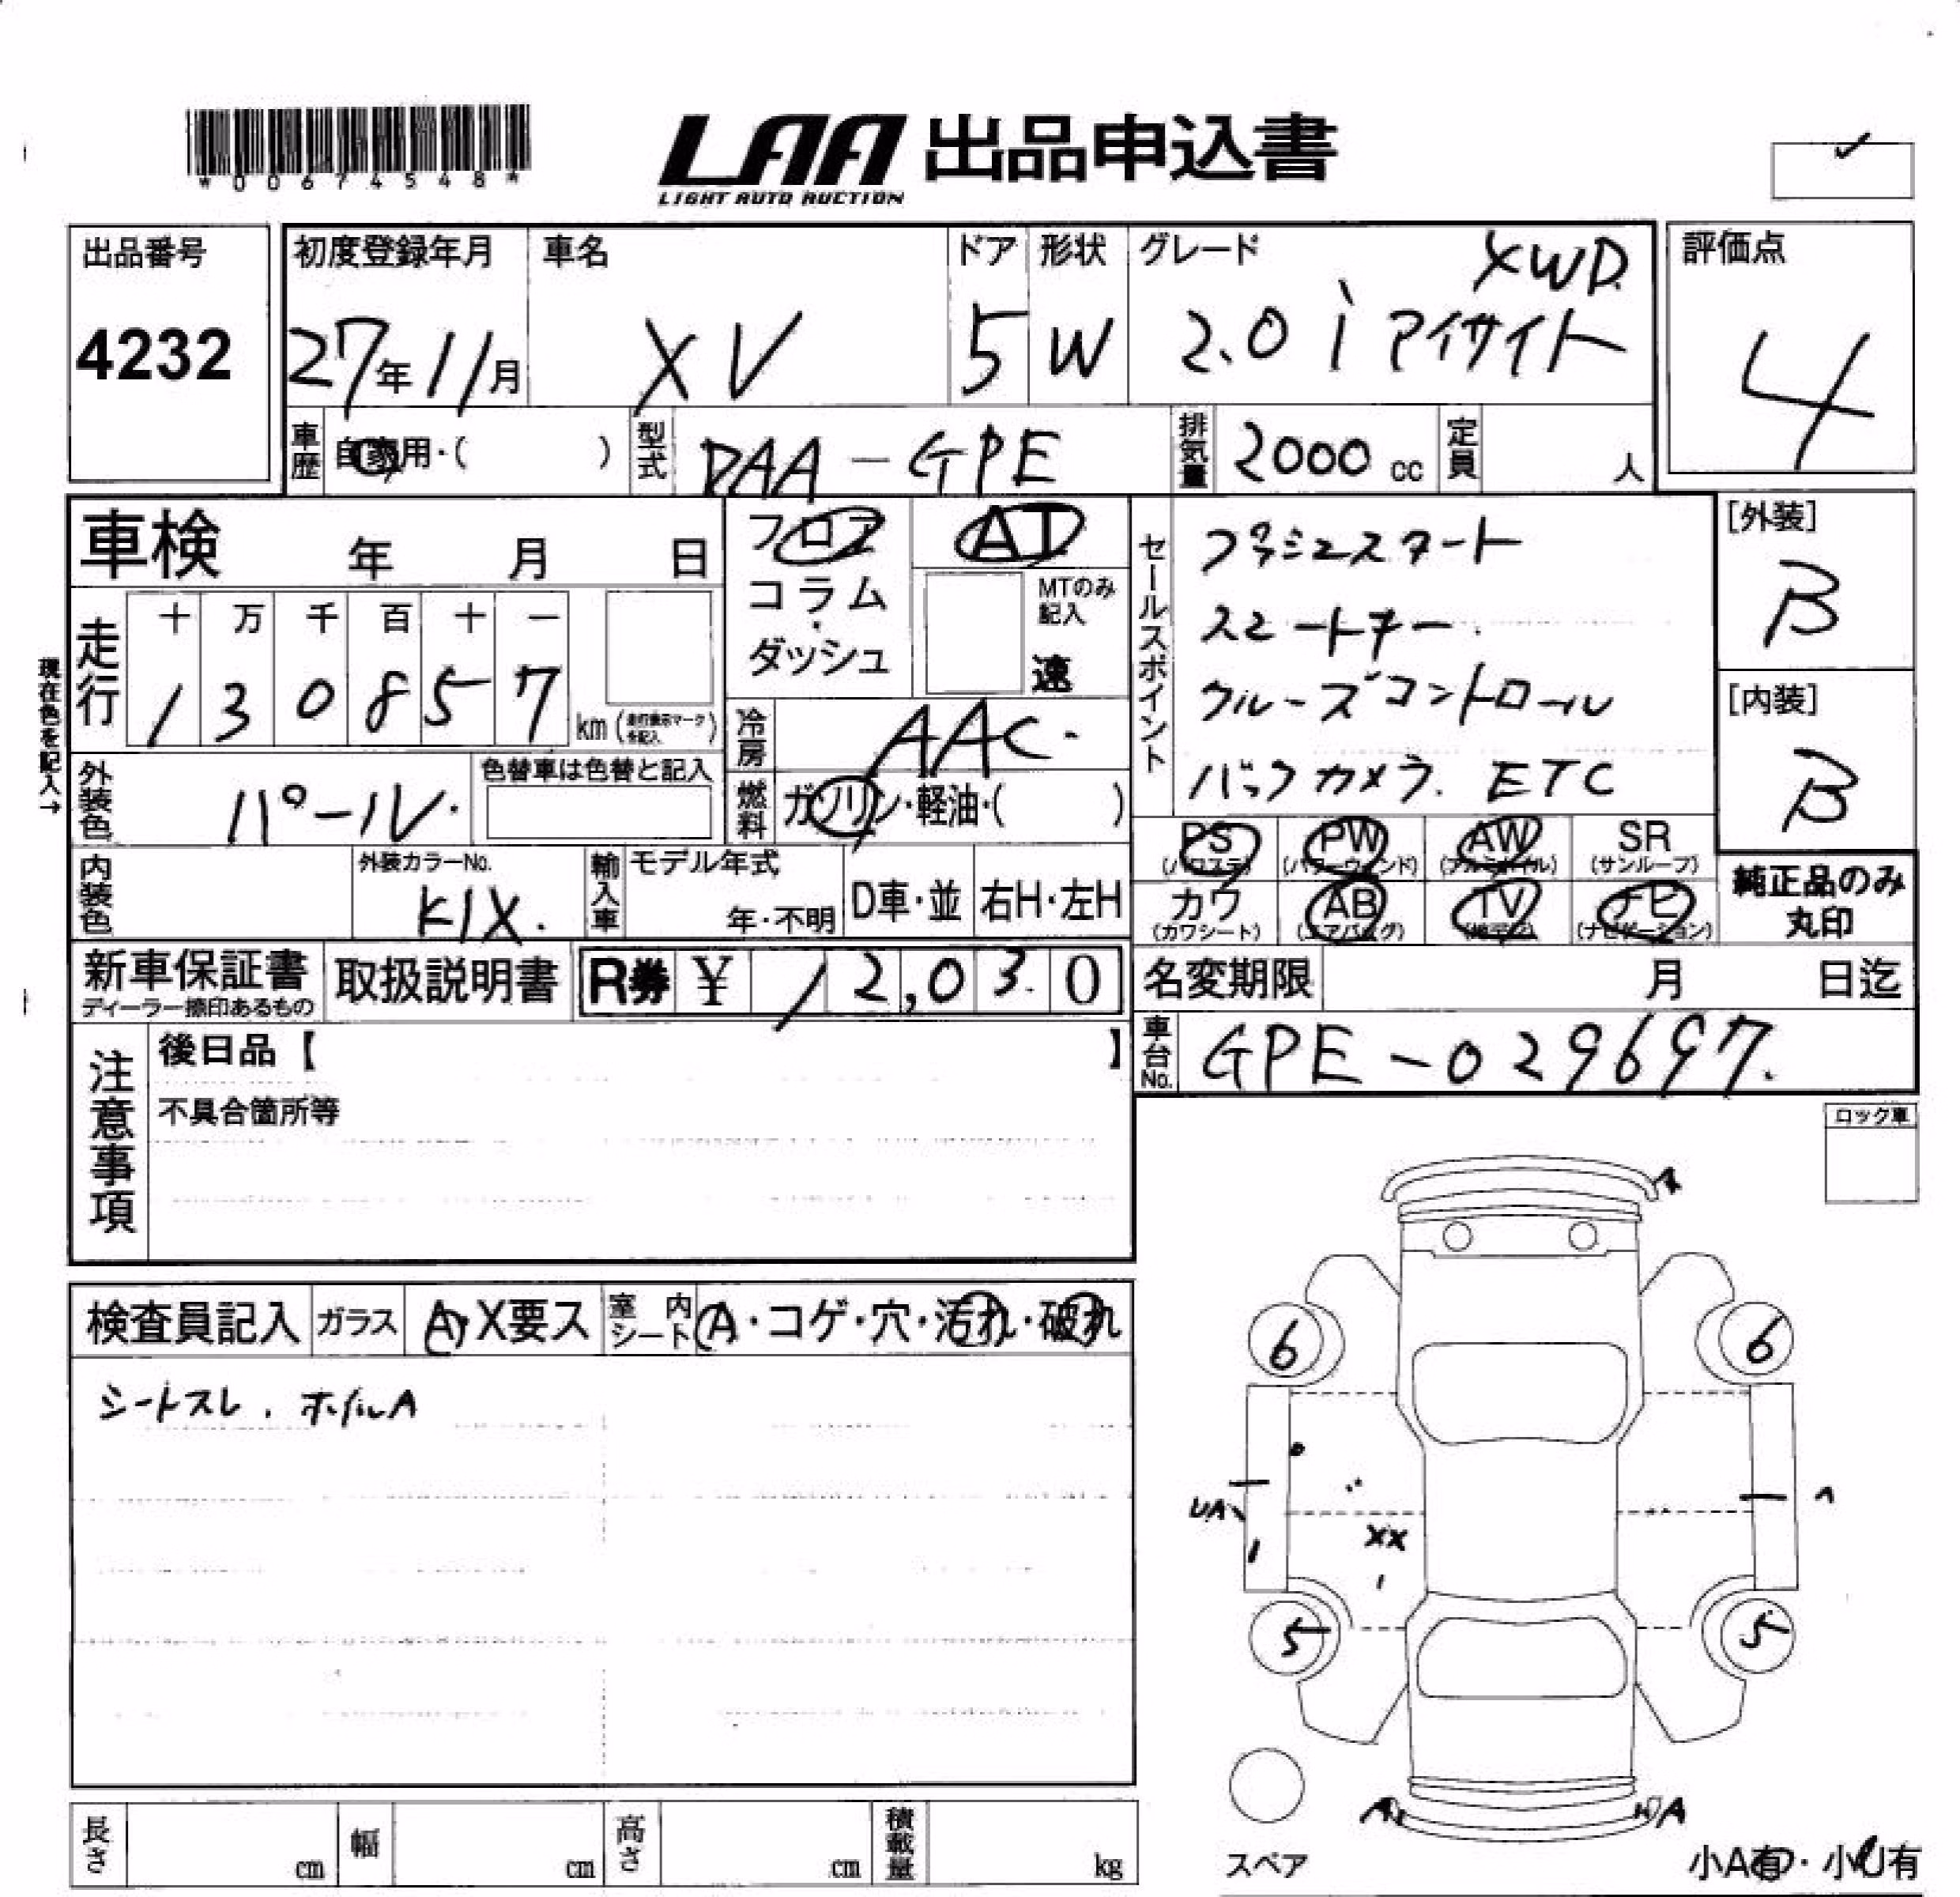 *00674548*
LAA 出品申込書
LIGHT AUTO AUCTION
出品番号
4232
初度登録年月
27年11月
車名
XV
ドア
5
形状
W
グレード
XWD
2.0i アイサイト
評価点
4
車歴 自家用・( )
型式 DAA-GPE
排気量 2000 cc
定員 人
車検 年 月 日
走行
十 万 千 百 十 一
1 3 0 8 5 7
km (走行表示マークを記入)
現在色を記入→
フロア
コラム
・
ダッシュ
AT
MTのみ記入
速
冷房 AAC
燃料 ガソリン・軽油・( )
セールスポイント
プッシュスタート
スマートキー
クルーズコントロール
バックカメラ. ETC
[外装]
B
[内装]
B
外装色 パール
色替車は色替と記入
内装色
外装カラーNo.
K1X.
輸入車
モデル年式
年・不明
D車・並
右H・左H
PS (パワステ)
PW (パワーウィンド)
AW (アルミホイル)
SR (サンルーフ)
カワ (カワシート)
AB (エアバッグ)
TV (地デジ)
ナビ (ナビゲーション)
純正品のみ
丸印
新車保証書
ディーラー捺印あるもの
取扱説明書
R券 ¥ 12,030
名変期限 月 日迄
車台No. GPE-029697.
注意事項
後日品【 】
不具合箇所等
ロック車
検査員記入
ガラス A・X要ス
室内シート A・コゲ・穴・汚れ・破れ
シートスレ. ホイルA
A
6 6
UA
XX
5 5
A A
スペア
小A有・小U有
長さ cm
幅 cm
高さ cm
積載量 kg